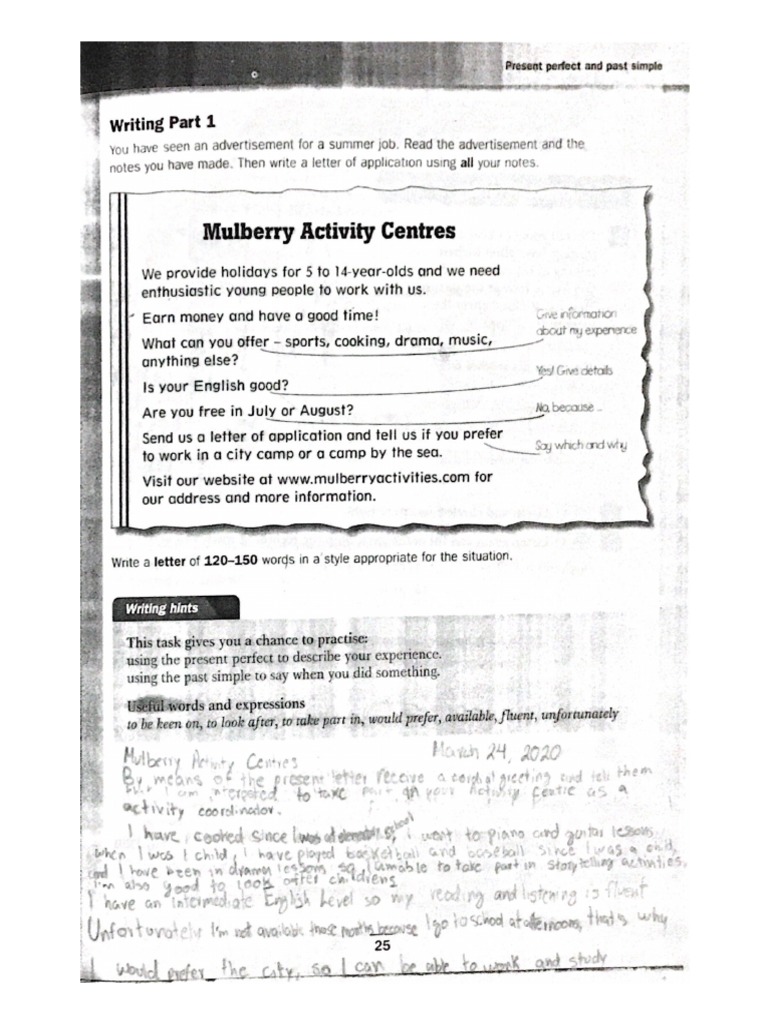 Present perfect and past simple
Writing Part 1
You have seen an advertisement for a summer job. Read the advertisement and the
notes you have made. Then write a letter of application using all your notes.
Mulberry Activity Centres
We provide holidays for 5 to 14-year-olds and we need
enthusiastic young people to work with us.
Earn money and have a good time!
Give information
about my experience
What can you offer – sports, cooking, drama, music,
anything else?
Yes! Give details
Is your English good?
Are you free in July or August?
No, because...
Send us a letter of application and tell us if you prefer
to work in a city camp or a camp by the sea.
Say which and why
Visit our website at www.mulberryactivities.com for
our address and more information.
Write a letter of 120–150 words in a style appropriate for the situation.
Writing hints
This task gives you a chance to practise:
using the present perfect to describe your experience.
using the past simple to say when you did something.
Useful words and expressions
to be keen on, to look after, to take part in, would prefer, available, fluent, unfortunately
Mulberry Activity Centres March 24, 2020
By means of the present letter receive a cordial greeting and tell them
I am interested to take part in your Activity centre as a
activity coordinator.
I have cooked since I was at school, I went to piano and guitar lessons
when I was I child, I have played basketball and baseball since I was a child,
and I have been in drama lessons so I am able to take part in storytelling activities,
I'm also good to look after childrens
I have an Intermediate English Level so my reading and listening is fluent
Unfortunately I'm not available those months because I go to school at afternoons, that's why
25
I would prefer the city, so I can be able to work and study